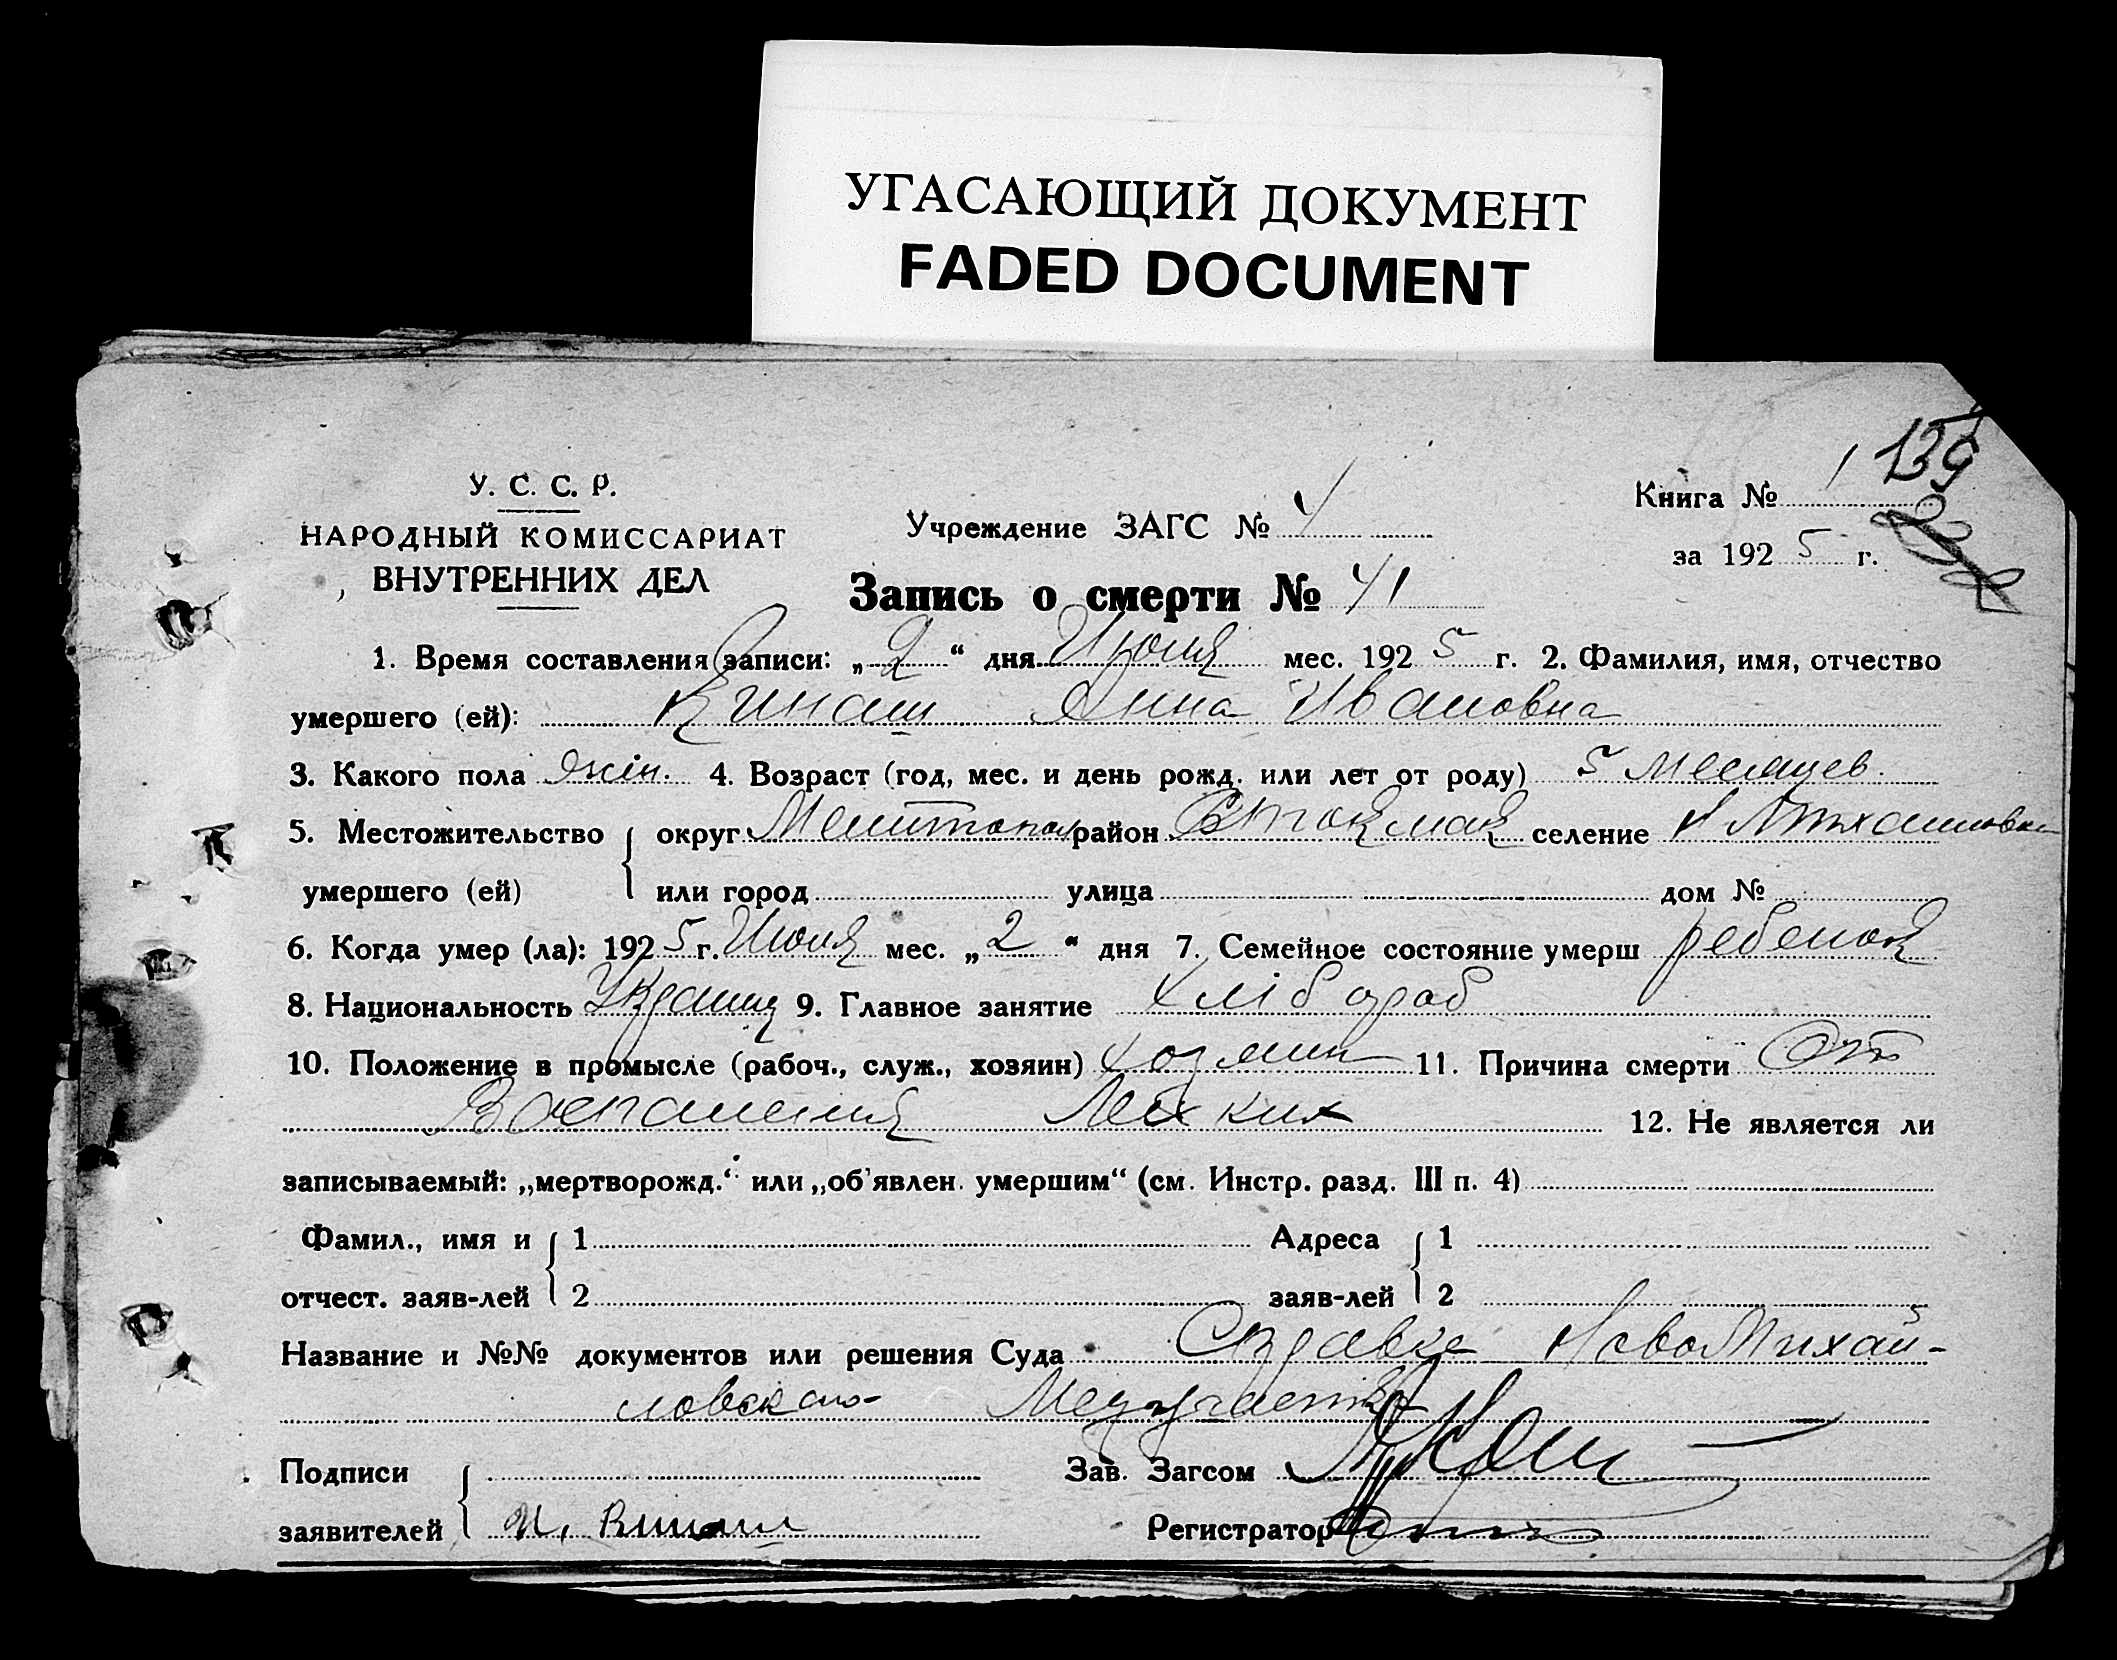 УГАСАЮЩИЙ ДОКУМЕНТ
FADED DOCUMENT
139
У. С. С. Р.
НАРОДНЫЙ КОМИССАРИАТ
ВНУТРЕННИХ ДЕЛ
Учреждение ЗАГС № 4
Книга № 1
за 1925 г.
Запись о смерти № 41
1. Время составления записи: „2“ дня Июня мес. 1925 г. 2. Фамилия, имя, отчество
умершего (ей): Кинаш Анна Ивановна
3. Какого пола жін. 4. Возраст (год, мес. и день рожд. или лет от роду) 5 месяцев.
5. Местожительство округ Мелитопол район В Токмак селение Н Михайловка
умершего (ей) или город улица дом №
6. Когда умер (ла): 1925 г. Июня мес. „2“ дня 7. Семейное состояние умерш ребенок
8. Национальность Украин 9. Главное занятие хлібороб
10. Положение в промысле (рабоч., служ., хозяин) хозяин 11. Причина смерти От
Воспаления Легких 12. Не является ли
записываемый: „мертворожд.“ или „об'явлен. умершим“ (см. Инстр. разд. III п. 4)
Фамил., имя и 1 Адреса 1
отчест. заяв-лей 2 заяв-лей 2
Название и №№ документов или решения Суда Справке НовоМихай-
ловского Медучастка
Подписи Зав. Загсом
заявителей И. Кинаш Регистратор